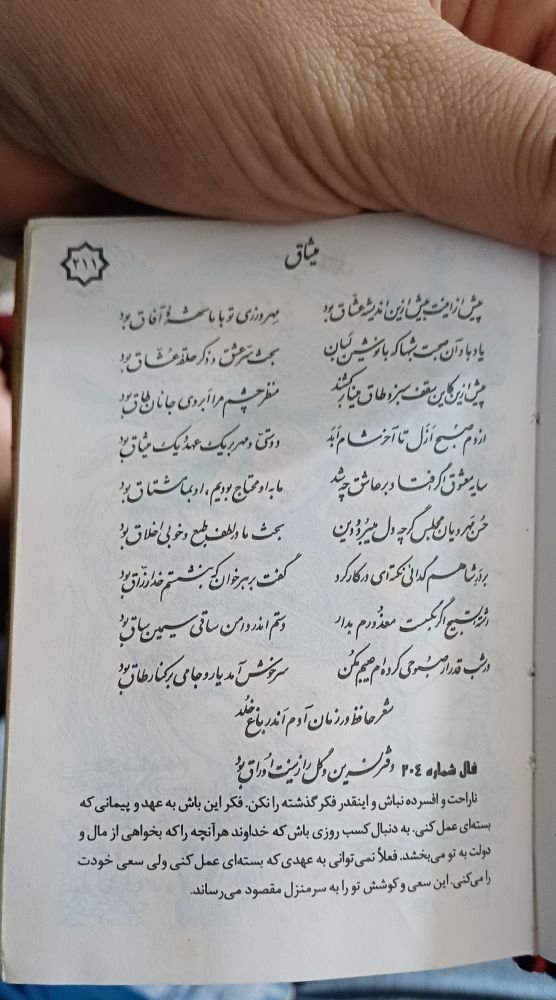 میثاق
۲۱۱
پیش ازاینت بیش ازین اندیشهٔ عشّاق بود مهرورزی تو با ما شهرهٔ آفاق بود
یاد باد آن صحبت شبها که با نوشین لبان بحث سرّ عشق و ذکر حلقه عشّاق بود
پیش ازین کاین سقف سبز و طاق مینا برکشند منظر چشم مرا ابروی جانان طاق بود
از دم صبح ازل تا آخر شام ابد دوستی و مهر بر یک عهد و یک میثاق بود
سایه معشوق اگر افتاد بر عاشق چه شد ما به او محتاج بودیم، او بما مشتاق بود
حُسن مهرویان مجلس گرچه دل میبرد و دین بحث ما در لطف طبع و خوبی اخلاق بود
بر در شاهم گدائی نکته‌ای در کار کرد گفت بر هر خوان که بنشستم خدا رزّاق بود
رشته تسبیح اگر بگسست معذورم بدار دستم اندر دامن ساقی سیمین ساق بود
در شب قدر ار صبوحی کرده‌ام عیبم مکُن سرخوش آمد یار و جامی بر کنار طاق بود
شعر حافظ در زمان آدم اندر باغ خُلد
دفتر نسرین و گل را زینت اوراق بود
فال شماره ۲۰۴
ناراحت و افسرده نباش و اینقدر فکر گذشته را نکن. فکر این باش به عهد و پیمانی که
بسته‌ای عمل کنی. به دنبال کسب روزی باش که خداوند هرآنچه را که بخواهی از مال و
دولت به تو می‌بخشد. فعلاً نمی‌توانی به عهدی که بسته‌ای عمل کنی ولی سعی خودت
را می‌کنی. این سعی و کوشش تو را به سرمنزل مقصود می‌رساند.